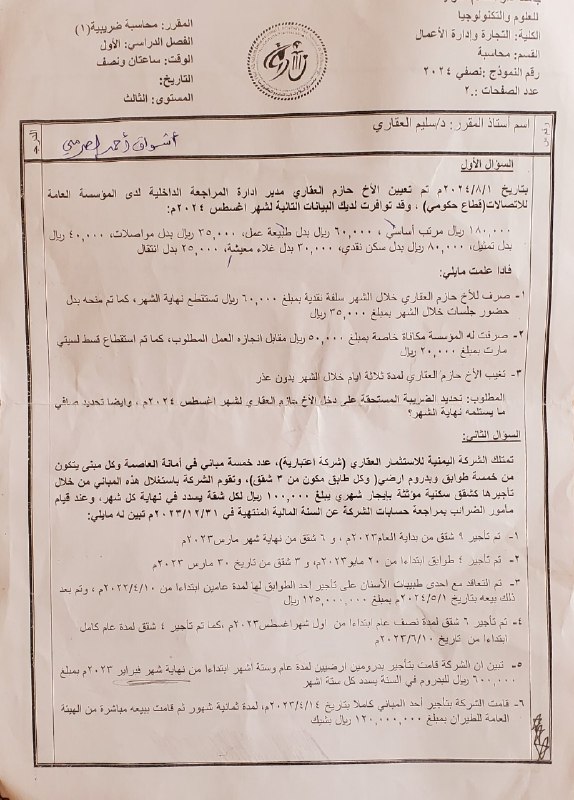 للعلوم والتكنولوجيا
الكلية: التجارة وإدارة الأعمال
القسم: محاسبة
رقم النموذج :نصفي ٢٠٢٤
عدد الصفحات :٢
المقرر: محاسبة ضريبية(١)
الفصل الدراسي: الأول
الوقت: ساعتان ونصف
التاريخ:
المستوى: الثالث
اسم أستاذ المقرر: د/سليم العقاري
السؤال الأول
بتاريخ ٢٠٢٤/٨/١م تم تعيين الأخ حازم العقاري مدير ادارة المراجعة الداخلية لدى المؤسسة العامة
للاتصالات(قطاع حكومي) ، وقد توافرت لديك البيانات التالية لشهر اغسطس ٢٠٢٤م:
١٨٠,٠٠٠ ريال مرتب أساسي ، ٦٠,٠٠٠ ريال بدل طبيعة عمل، ٣٥,٠٠٠ ريال بدل مواصلات، ٤٠,٠٠٠ ريال
بدل تمثيل، ٨٠,٠٠٠ ريال بدل سكن نقدي، ٣٠,٠٠٠ بدل غلاء معيشة، ٢٥,٠٠٠ بدل انتقال
فاذا علمت مايلي:
١- صرف للأخ حازم العقاري خلال الشهر سلفة نقدية بمبلغ ٦٠,٠٠٠ ريال تستقطع نهاية الشهر، كما تم منحه بدل
حضور جلسات خلال الشهر بمبلغ ٣٥,٠٠٠ ريال
٢- صرفت له المؤسسة مكافاة خاصة بمبلغ ٥٠,٠٠٠ ريال مقابل انجازه العمل المطلوب، كما تم استقطاع قسط لسيتي
مارت بمبلغ ٢٠,٠٠٠ ريال
٣- تغيب الأخ حازم العقاري لمدة ثلاثة ايام خلال الشهر بدون عذر
المطلوب: تحديد الضريبة المستحقة على دخل الأخ حازم العقاري لشهر اغسطس ٢٠٢٤م ، وايضا تحديد صافي
ما يستلمه نهاية الشهر؟
السؤال الثاني:
تمتلك الشركة اليمنية للاستثمار العقاري (شركة اعتبارية)، عدد خمسة مباني في أمانة العاصمة وكل مبنى يتكون
من خمسة طوابق وبدروم ارضي( وكل طابق مكون من ٣ شقق)، وتقوم الشركة باستغلال هذه المباني من خلال
تأجيرها كشقق سكنية مؤثثة بإيجار شهري يبلغ ١٠٠,٠٠٠ ريال لكل شقة يسدد في نهاية كل شهر، وعند قيام
مأمور الضرائب بمراجعة حسابات الشركة عن السنة المالية المنتهية في ٢٠٢٣/١٢/٣١م تبين له مايلي:
١- تم تأجير ٩ شقق من بداية العام ٢٠٢٣م ، و ٦ شقق من نهاية شهر مارس ٢٠٢٣م
٢- تم تأجير ٤ طوابق ابتداءا من ٢٠ مايو ٢٠٢٣م، و ٣ شقق من تاريخ ٣٠ مارس ٢٠٢٣م
٣- تم التعاقد مع احدى طبيبات الأسنان على تأجير احد الطوابق لها لمدة عامين ابتداءا من ٢٠٢٢/٤/١٠م ، وتم بعد
ذلك بيعه بتاريخ ٢٠٢٤/٥/١م بمبلغ ١٢٥,٠٠٠,٠٠٠ ريال
٤- تم تأجير ٦ شقق لمدة نصف عام ابتداءا من اول شهر اغسطس ٢٠٢٣م ،كما تم تأجير ٤ شقق لمدة عام كامل
ابتداءا من تاريخ ٢٠٢٣/٦/١٠م
٥- تبين ان الشركة قامت بتأجير بدرومين ارضيين لمدة عام وستة اشهر ابتداءا من نهاية شهر فبراير ٢٠٢٣م بمبلغ
٦٠٠,٠٠٠ ريال للبدروم في السنة يسدد كل ستة اشهر
٦- قامت الشركة بتأجير أحد المباني كاملا بتاريخ ٢٠٢٣/٤/١٤م، لمدة ثمانية شهور ثم قامت ببيعه مباشرة من الهيئة
العامة للطيران بمبلغ ١٢٠,٠٠٠,٠٠٠ ريال بشيك